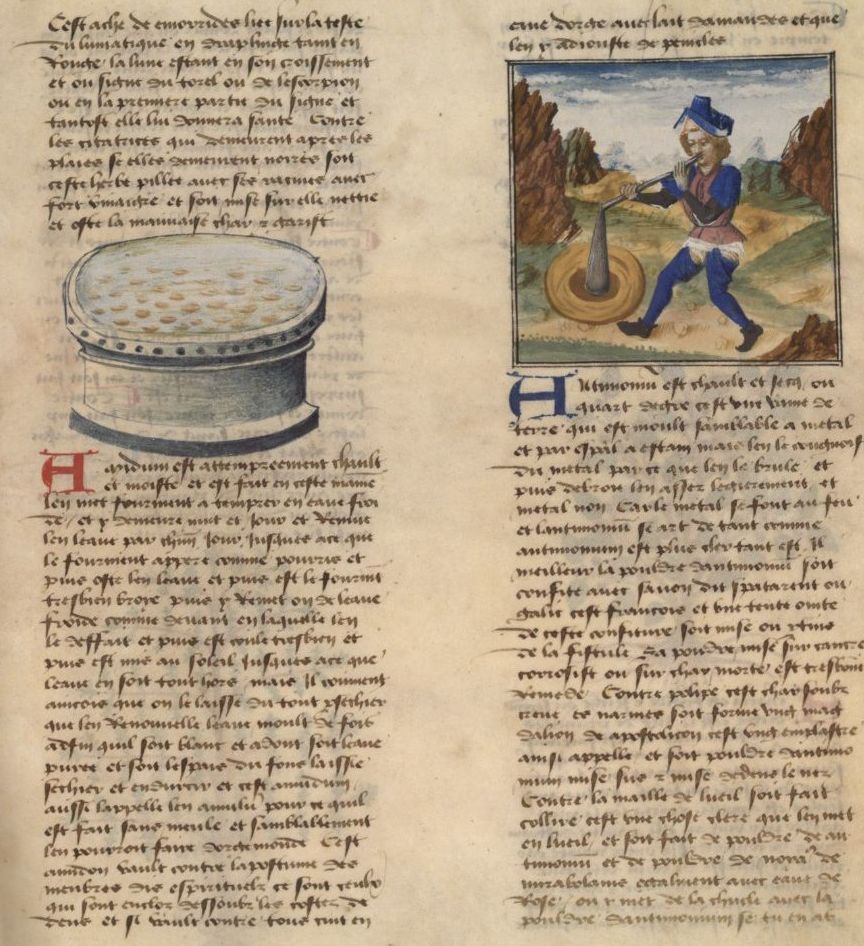 Cest ache de emorrides liee sur la teste
du lunatique en drap linge taint en
Rouge la lune estant en son croissement
et ou signe du torel ou de lescorpion
ou en la premiere partie du signe et
tantost elle lui donnera sante Contre
les cicatrices qui demeurent apres les
plaies se elles demeurent noires soit
ceste herbe pillee avec ses racines avec
fort vinaigre et soit mise sur elle nettie
et oste la mauvaise char et garist
Amidum est attempreement chault
et moiste et est fait en ceste maniere
len met fourment a temprer en eaue froi
de et y demeure nuit et Jour et Remue
len leaue par chun Jour Jusques ace que
le fourment appere comme pourris et
puis oste len leaue et puis est le fourmt
tresbien broye puis y Remet on de leaue
froide comme devant en laquelle len
le deffait et puis est coule tresbien et
puis est mis au soleil Jusques ace que
leaue en soit tout hors mais Il convient
amcois que on le laisse du tout sechier
que len Renouvelle leaue moult de fois
adfin quil soit blanc et adont soit leaue
puree et soit lespais du fons laissie
sechier et endurcir et cest amidum
aussi lappelle len amilum pour ce quil
est fait sans meule et samblablement
len pourroit faire dorge monde Cest
amidon vault contre lapostume des
membres dis espirituelz ce sont ceulx
qui sont enclos dessoubz les costes de
dens et si vault contre tous cuit en
eaue dorge avec lait damandes et que
len y adiouste de penides
Antimonium est chault et secq ou
quart degre cest une vaine de
terre qui est moult samblable a metal
et par espal a estain mais len le congnoist
du metal par ce que len le brule et
puis debrou len asser legierement et
metal non Car le metal se font au feu
et lantimonium se art de tant comme
antimonium est plus cler tant est Il
meilleur la pouldre dantimonium soit
confite avec savon dit spatarent ou
galic cest francois et une tente ointe
de ceste confiture soit mise ou
de la fistule Sa pouldre mise sur cancre
corrosist ou sur char morte est tresbon
Remede Contre polipe cest char soubz
creue es narines soit forme ung mag
dalion de apostolicon cest ung emplastre
ainsi appelle et soit pouldre dantimo
nium mise sus et mise dedens le nez
Contre la maille de lueil soit fait
collire cest une chose clere que len met
en lueil et soit fait de pouldre de an
timonium et de pouldre de de
mirabolains egalment avec eaue de
Rose ou y met de la avec la
pouldre dantimonium se tu en as